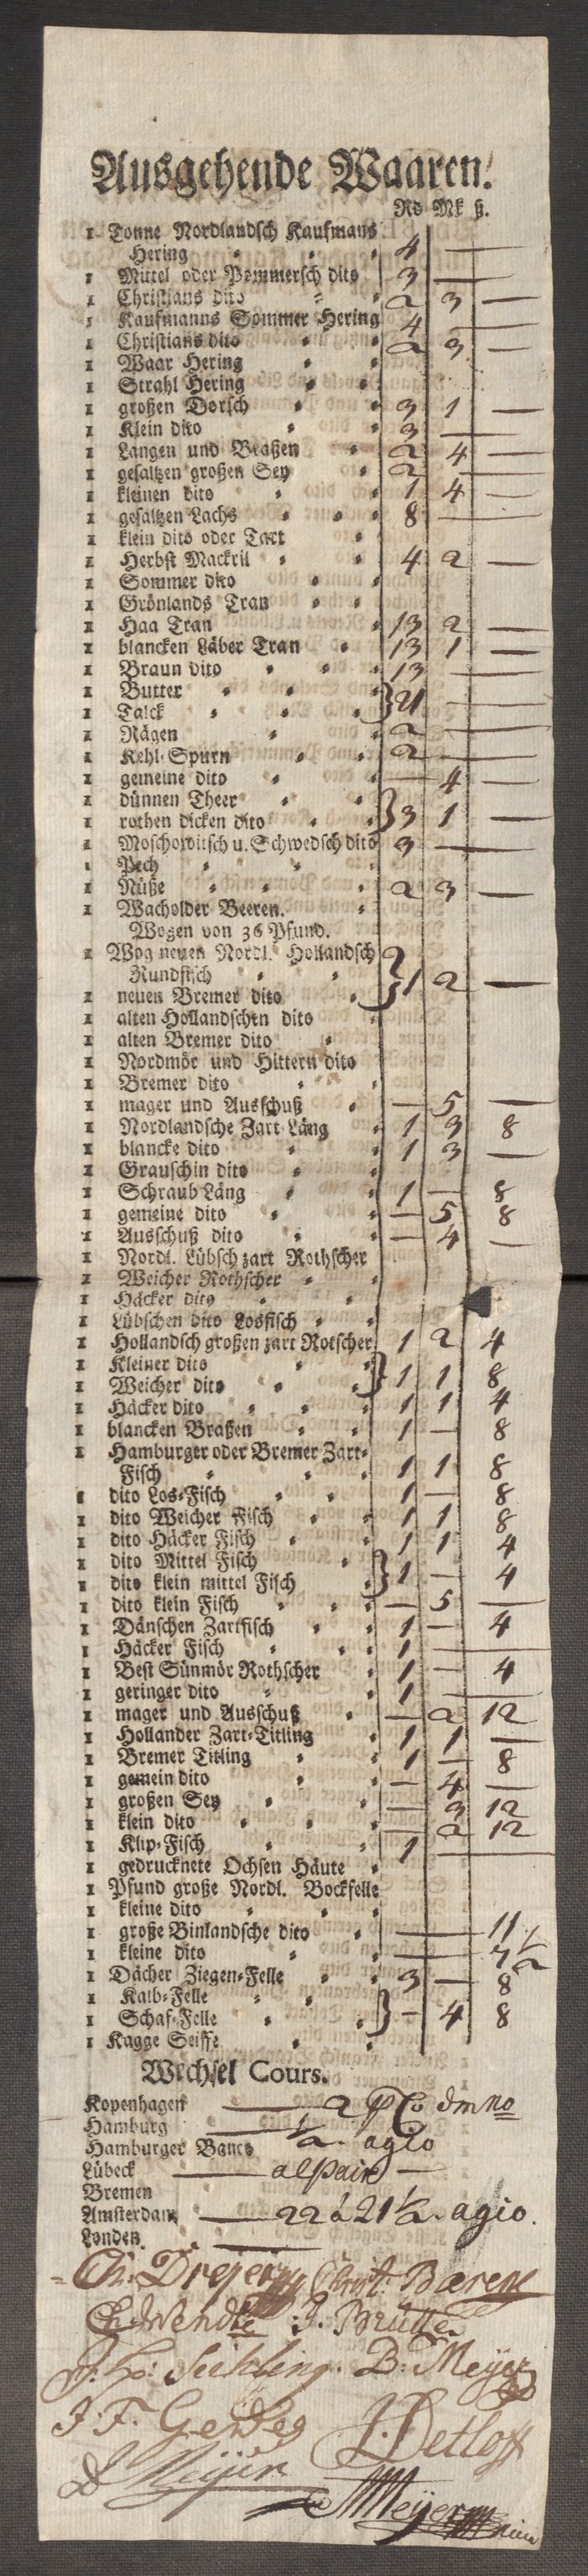 Ausgehende Waaren.
Rd Mk ß.
1 Tonne Nordlandsch Kaufmans
Hering 4 —
1 Mittel oder Pommersch dito 3 —
1 Christians dito 2 3 —
1 Kaufmanns Sommer Hering 4 —
1 Christians dito 2 3 —
1 Waar Hering
1 Strahl Hering
1 großen Dorsch 3 1 —
1 Klein dito 3 —
1 Langen und Braßen 2 4 —
1 gesaltzen großen Sey 2 —
1 kleinen dito 1 4 —
1 gesaltzen Lachs 8 —
1 klein dito oder Tart
1 Herbst Mackril 4 2 —
1 Sommer dito
1 Grönlands Tran
1 Haa Tran 13 2 —
1 blancken Läber Tran 13 1 —
1 Braun dito 13 —
1 Butter
1 Talck } 21 —
1 Rägen 2 —
1 Kehl-Spurn 2 —
1 gemeine dito — 4 —
1 dünnen Theer
1 rothen dicken dito } 3 1 —
1 Moschowitsch u. Schwedsch dito 3 —
1 Pech
1 Nüße 2 3 —
1 Wacholder Beeren.
Wogen von 36 Pfund.
1 Wog neuen Nordl. Hollandsch
Rundfisch
1 neuen Bremer dito } 1 2 —
1 alten Hollandschen dito
1 alten Bremer dito
1 Nordmör und Hittern dito
1 Bremer dito
1 mager und Ausschuß — 5 —
1 Nordlandsche Zart Läng 1 3 8
1 blancke dito 1 3 —
1 Grauschin dito
1 Schraub Läng 1 — 8
1 gemeine dito — 5 8
1 Ausschuß dito — 4 —
1 Nordl. Lübsch zart Rothscher
1 Weicher Rothscher
1 Häcker dito
1 Lübschen dito Losfisch
1 Hollandsch großen zart Rotscher 1 2 4
1 Kleiner dito
1 Weicher dito } 1 1 8
1 Häcker dito 1 1 4
1 blancken Braßen 1 — 8
1 Hamburger oder Bremer Zart-
Fisch 1 1 8
1 dito Los-Fisch 1 — 8
1 dito Weicher Fisch 1 1 8
1 dito Häcker Fisch 1 1 4
1 dito Mittel Fisch
1 dito klein mittel Fisch } 1 — 4
1 dito klein Fisch — 5 —
1 Dänschen Zartfisch 1 — 4
1 Häcker Fisch 1 —
1 Best Sünmör Rothscher 1 — 4
1 geringer dito 1 —
1 mager und Ausschuß — 2 12
1 Hollander Zart-Titling 1 1 —
1 Bremer Titling 1 — 8
1 gemein dito — 4 —
1 großen Sey — 3 12
1 klein dito — 2 12
1 Klip-Fisch 1 —
1 gedrucknete Ochsen Häute
1 Pfund große Nordl. Bockfelle
1 kleine dito
1 große Binlandsche dito — 11
1 kleine dito — 7 1/2
1 Dächer Ziegen-Felle 3 — 8
1 Kalb-Felle
1 Schaf-Felle } — 4 8
1 Kagge Seiffe
Wechsel Cours.
Kopenhagen — 2 pCo
Hamburg
Hamburger Banco 1/2 agio
Lübeck — alpari —
Bremen
Amsterdam — 22 á 21 1/2 agio.
Londen —
Ch: Dreyer Christ. Barens
Ch Wendte J.
B. Meyer
J. F. Gerdes J. Detloff
D Meyer
Meyer